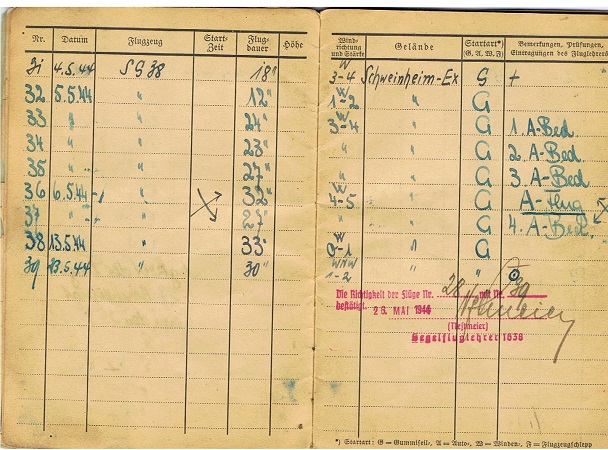 Nr. Datum Flugzeug Start-Zeit Flug-dauer Höhe Wind-richtung und Stärke Gelände Startart*) (G. A. W. F.) Bemerkungen, Prüfungen, Eintragungen des Fluglehrers
31 4.5.44 SG38 18" W 3-4 Schweinheim-Ex G +
32 5.5.44 " 12" W 1-2 " G
33 " " 24" W 3-4 " G 1. A-Bed.
34 " " 23" " " G 2. A-Bed.
35 " " 27" " " G 3. A-Bed
36 6.5.44 " 32" W 4-5 " G A-Flug
37 " " 27" " " G 4. A-Bed.
38 13.5.44 " 33" W 0-1 " G
39 23.5.44 " 30" WNW 1-2 " "
Die Richtigkeit der Flüge Nr. 28 mit Nr. 39
bestätigt. 26. MAI 1944
Segelfluglehrer 1638
*) Startart: G = Gummiseil, A = Auto, W = Winden, F = Flugzeugschlepp